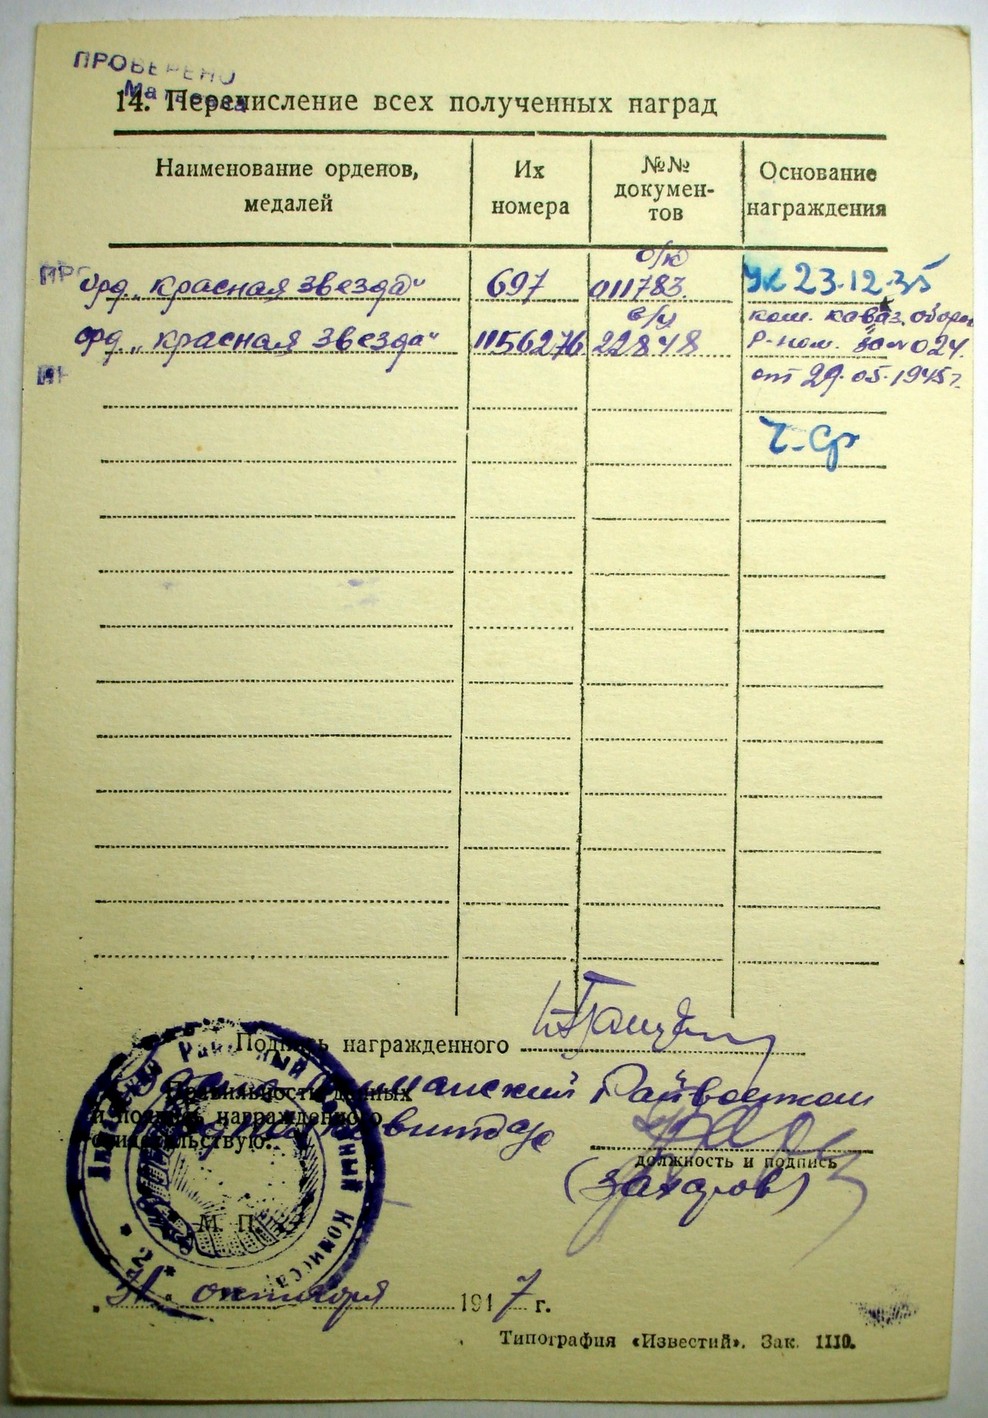 ПРОВЕРЕНО
14. Перечисление всех полученных наград
Наименование орденов, медалей
Их номера
№№ документов
Основание награждения
орд. „Красная звезда“ 697 о/к 011783. УК 23.12.35
орд. „Красная звезда“ 1156276 в/у 22848 ком. каваз. оборон
Р-ном. за № 024.
от 29.05.1945 г.
Подпись награжденного
Правильность данных
и подпись награжденного
свидетельствую:
Райвоенком
должность и подпись
(Захаров)
М. П.
31. октября 1947 г.
Типография «Известий». Зак. 1110.